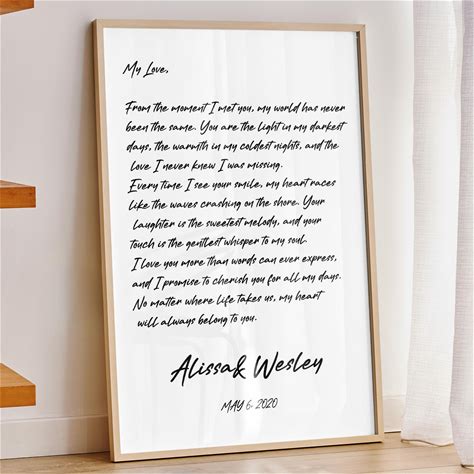 My Love,
From the moment I met you, my world has never
been the same. You are the light in my darkest
days, the warmth in my coldest nights, and the
love I never knew I was missing.
Every time I see your smile, my heart races
like the waves crashing on the shore. Your
laughter is the sweetest melody, and your
touch is the gentlest whisper to my soul.
I love you more than words can ever express,
and I promise to cherish you for all my days.
No matter where life takes us, my heart
will always belong to you.
Alissa& Wesley
MAY 6, 2020